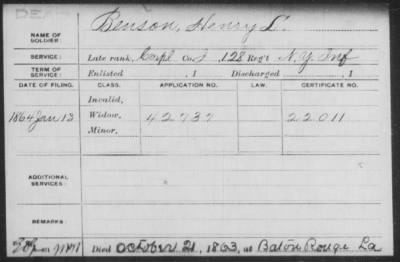 DEA
NAME OF SOLDIER: Benson, Henry L.
SERVICE: Late rank, Corpl Co. I, 128 Reg't N.Y. Inf
TERM OF SERVICE: Enlisted , 1 Discharged , 1
DATE OF FILING. CLASS. APPLICATION NO. LAW. CERTIFICATE NO.
Invalid,
1864 Jan 13 Widow, 42737 22011
Minor,
ADDITIONAL SERVICES:
REMARKS:
Died October 21, 1863, at Baton Rouge La